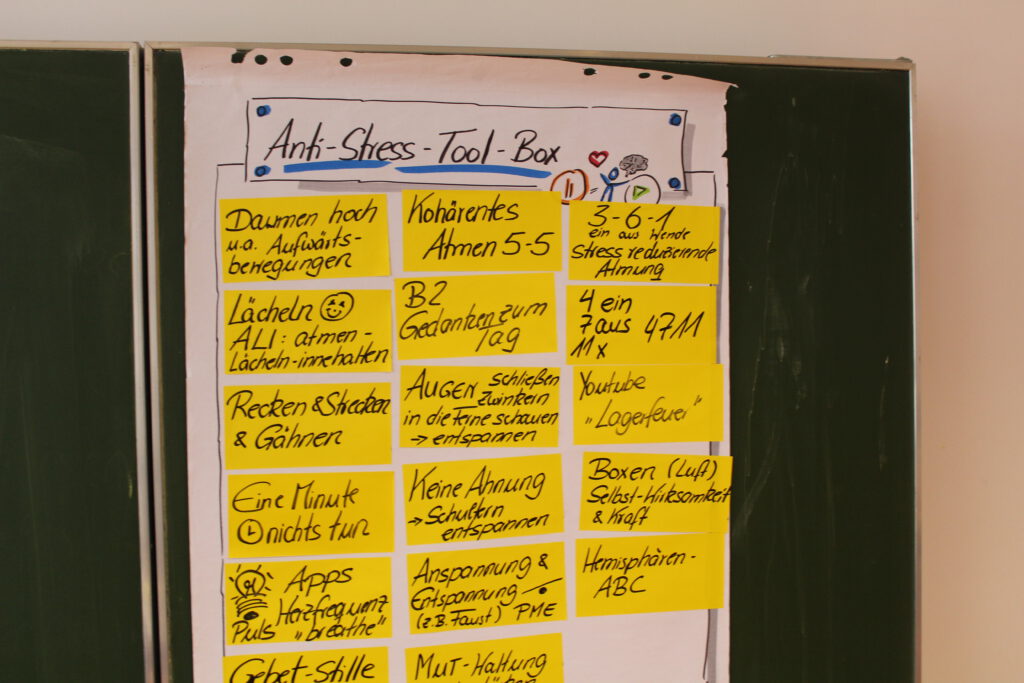 Anti-Stress-Tool-Box
Daumen hoch
u.a. Aufwärts-
bewegungen
Lächeln
ALI: atmen-
Lächeln-innehalten
Recken & Strecken
& Gähnen
Eine Minute
nichts tun
Apps
Herzfrequenz
Puls "breathe"
Gebet-Stille
Kohärentes
Atmen 5-5
B2
Gedanken zum
Tag
AUGEN schließen
Zwinkern
in die Ferne schauen
→ entspannen
Keine Ahnung
→ Schultern
entspannen
Anspannung &
Entspannung
(z.B. Faust) PME
MUT-Haltung
3-6-1
ein aus Wende
Stress reduzierende
Atmung
4 ein
7 aus 4711
11x
Youtube
"Lagerfeuer"
Boxen (Luft)
Selbst-Wirksamkeit
& Kraft
Hemisphären-
ABC